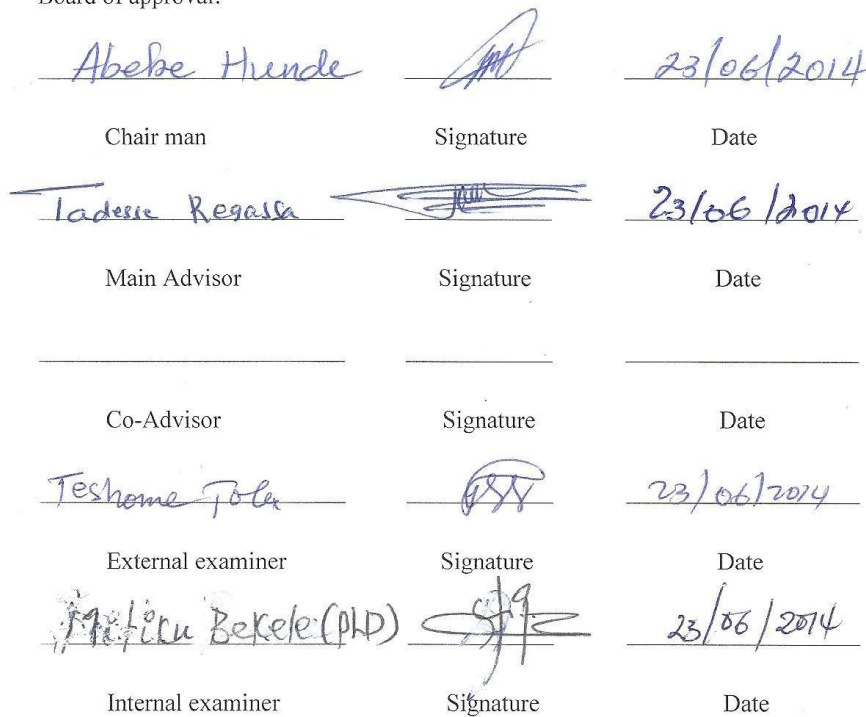 Board of approval:
Abebe Hunde 23/06/2014
Chair man Signature Date
Tadesse Regassa 23/06/2014
Main Advisor Signature Date
Co-Advisor Signature Date
Teshome Tola 23/06/2014
External examiner Signature Date
Bekele (PhD) 23/06/2014
Internal examiner Signature Date